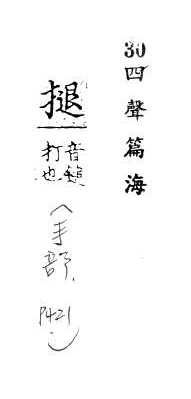 30 四聲篇海
音
打也
(手部, P421)